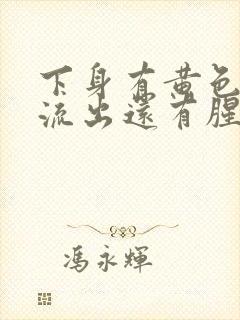 下身有黄色
流出还有腥
冯永辉